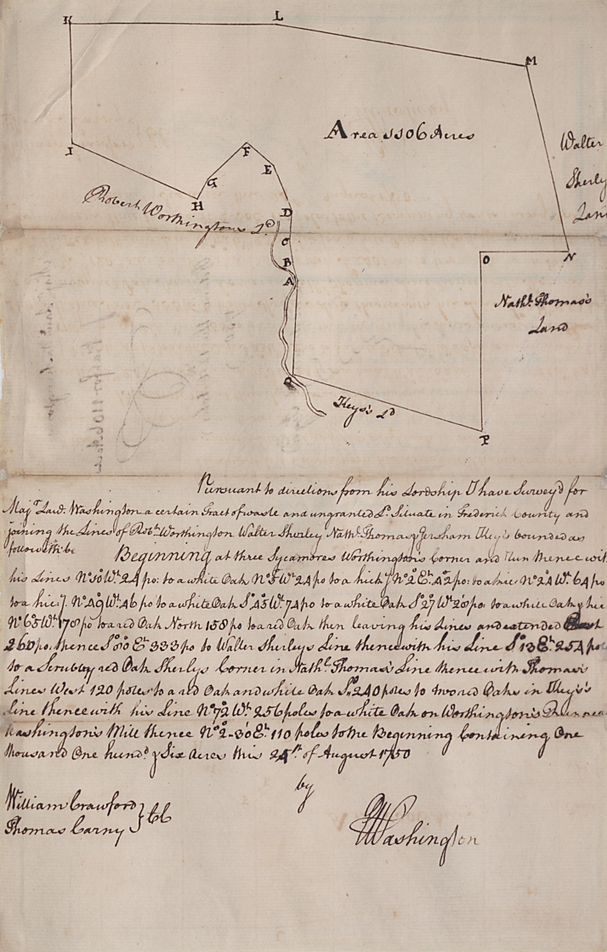 K
L
M
Area 1106 Acres
Walter
Sherly
Land
I
F
G
E
H
Robert Worthingtons Ld
D
C
B
A
O
N
Nathl. Thomas's
Land
Q
Keys's Ld
P
Pursuant to directions from his Lordship I have Survey'd for
Majr Lawe. Washington a certain Tract of waste and ungranted Ld. Situate in Frederick County and
joining the Lines of Robt. Worthington Walter Sherley Nathl. Thomas & Gersham Key's bounded as
followeth be Beginning at three Sycamores Worthington's Corner and Run thence with
his Lines No. 10 Wt. 24 po: to a white Oak No. 5 Wt. 24 po to a hicky. No. 2 Et. 42 po: to a hic No. 24 Wt. 64 po
to a hicy. No. 49 Wt. 46 po to a white Oak So. 45 Wt. 74 po to a white Oak So. 27 Wt. 28 po: to a white Oak & hic
No. 65 Wt. 178 po to a red Oak North 158 po to a red Oak then leaving his Lines and extended East
260 po. thence So. 80 Et. 333 po to Walter Sherleys Line thence with his Line So. 13 Et. 254 pole
to a Scrubby red Oak Sherlys Corner in Nathl. Thomas's Line thence with Thomas's
Lines West 120 poles to a red Oak and white Oak So. 240 poles to two red Oaks in Keys's
Line thence with his Line No. 72 Wt. 256 poles to a white Oak on Worthington's
Washington's Mill thence No. 2-30 Et. 110 poles to the Beginning Containing One
thousand One hundd. & Six Acres this 24th. of August 1750
by
William Crawford } CC
Thomas Carny
GWashington